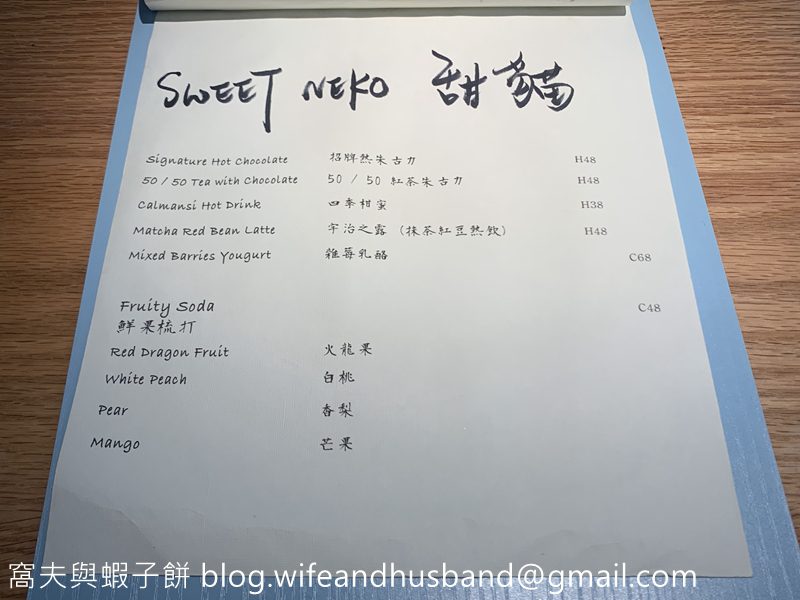 SWEET NEKO 甜貓
Signature Hot Chocolate 招牌熱朱古力 H48
50 / 50 Tea with Chocolate 50 / 50 紅茶朱古力 H48
Calmansi Hot Drink 四季柑蜜 H38
Matcha Red Bean Latte 宇治之露 (抹茶紅豆熱飲) H48
Mixed Barries Yougurt 雜莓乳酪 C68
Fruity Soda C48
鮮果梳打
Red Dragon Fruit 火龍果
White Peach 白桃
Pear 香梨
Mango 芒果
窩夫與蝦子餅 blog.wifeandhusband@gmail.com